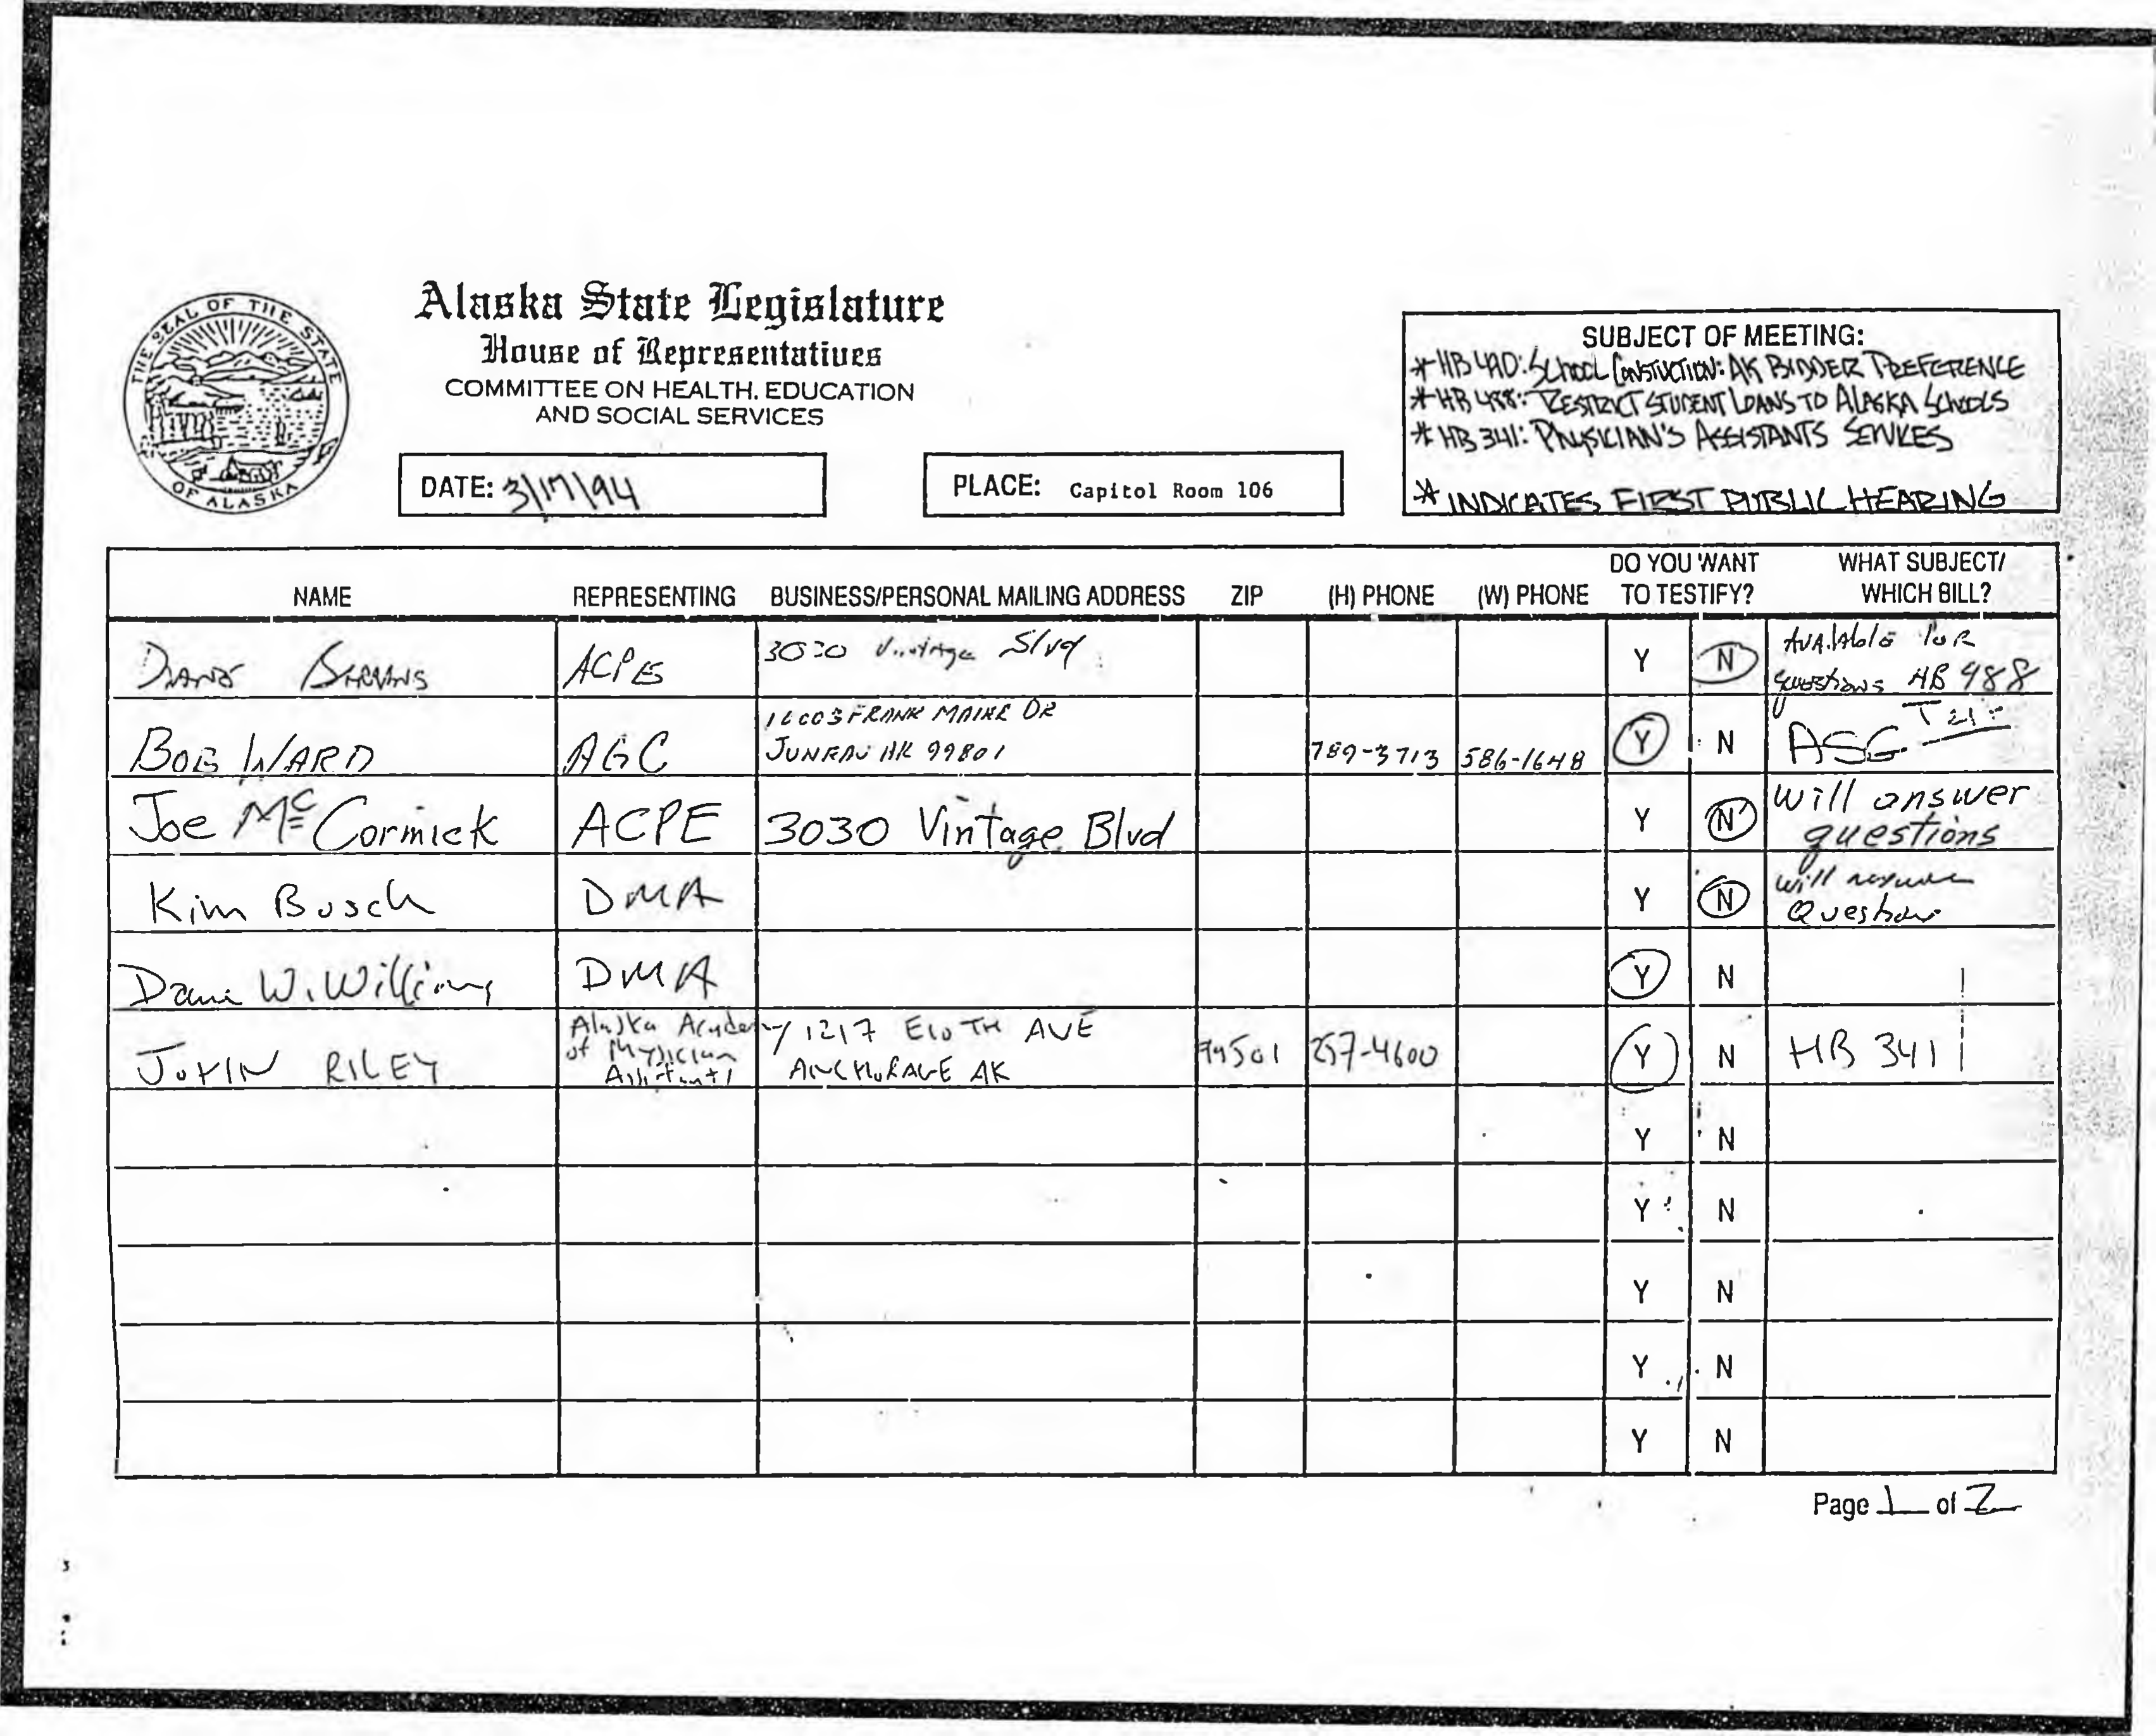 THE SEAL OF THE STATE
OF ALASKA
Alaska State Legislature
House of Representatives
COMMITTEE ON HEALTH, EDUCATION
AND SOCIAL SERVICES
DATE: 3/17/94
PLACE: Capitol Room 106
SUBJECT OF MEETING:
* HB 490: SCHOOL CONSTUCTION: AK BIDDER PREFERENCE
* HB 488: RESTRICT STUDENT LOANS TO ALASKA SCHOOLS
* HB 341: PHYSICIAN'S ASSISTANTS SERVICES
* INDICATES FIRST PUBLIC HEARING
NAME REPRESENTING BUSINESS/PERSONAL MAILING ADDRESS ZIP (H) PHONE (W) PHONE DO YOU WANT TO TESTIFY? WHAT SUBJECT/ WHICH BILL?
ACPE Vintage Y N AVAilAble FOR
questions HB 488
BOB WARD AGC FRANK MAIER DR
JUNEAU AK 99801 789-3713 586-1648 Y N
Joe McCormick ACPE 3030 Vintage Blvd Y N will answer
questions
Kim Busch DMA Y N will
Question
W. Williams DMA Y N
JOHN RILEY Alaska Academy of Physician Assistants 1217 E 10TH AVE
ANCHORAGE AK 99501 257-4600 Y N HB 341
Y N
Y N
Y N
Y N
Y N
Page 1 of 2